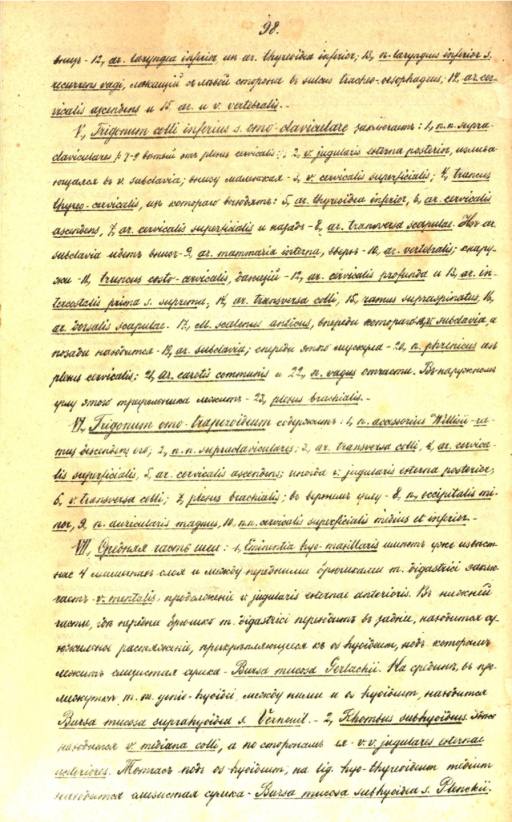 98.
вницъ - 12, ar. laryngea inferior, um ar. thyreoidea inferior; 13, n. laryngeus inferior s.
recurrens vagi, лежащій съ лѣвой стороны въ sulcus tracheo-oesophageus; 14, ar. cer-
vicalis ascendens и 15, ar. и v. vertebralis. -
V, Trigonum colli inferius s. omo-claviculare заключаетъ: 1, n.n. supra-
claviculares plexus cervicalis; 2, v. jugularis externa posterior, излива-
ющаяся въ v. subclavia; внизу маленькая - 3, v. cervicalis superficialis; 4, truncus
thyreo-cervicalis, изъ котораго выходятъ: 5, ar. thyreoidea inferior, 6, ar. cervicalis
ascendens, 7, ar. cervicalis superficialis и назадъ - 8, ar. transversa scapulae. Изъ ar.
subclavia идетъ внизъ - 9, ar. mammaria interna, вверхъ - 10, ar. vertebralis; снару-
жи - 11, truncus costo-cervicalis, дающій - 12, ar. cervicalis profunda и 13, ar. in-
tercostalis prima s. suprema; 14, ar. transversa colli, 15, ramus supraspinatus, 16,
ar. dorsalis scapulae. - 17, m. scalenus anticus, впереди котораго v. subclavia, и
позади находится - 19, ar. subclavia; спереди этого мускула - 20, n. phrenicus изъ
plexus cervicalis; 21, ar. carotis communis и 22, n. vagus отчасти. Въ наружномъ
углу этого треугольника лежитъ - 23, plexus brachialis. -
VI, Trigonum omo-trapezoideum содержитъ: 1, n. accessorius Willisii - ra-
mus descendens его; 2, n.n. supraclaviculares; 3, ar. transversa colli, 4, ar. cervica-
lis superficialis, 5, ar. cervicalis ascendens; иногда v. jugularis externa posterior;
6, v. transversa colli; 7, plexus brachialis; въ верхнемъ углу - 8, n. occipitalis mi-
nor, 9, n. auricularis magnus, 10, n.n. cervicalis superficialis medius et inferior. -
VII, Средняя часть шеи: - 1, Eminentia hyo-maxillaris имѣетъ уже извѣст-
ные 4 слоя и между передними брюшками m. digastrici заклю-
чаетъ - v. mentalis, продолженіе v. jugularis externae anterioris. Въ нижній
части, гдѣ передни брюшко m. digastrici переходитъ въ задніе, находится су-
хожильное растяженіе, прикрѣпляющееся къ os hyoideum, подъ которымъ
лежитъ слизистая сумка - Bursa mucosa Gerlachii. На срединѣ, въ про-
межуткѣ m. m. genio-hyoidei, между ними и os hyoideum, находится
Bursa mucosa suprahyoidea s. Verneuil. - 2, Rhombus subhyoideus. Здѣсь
находится v. mediana colli, а по сторонамъ ея - v.v. jugulares externae
anteriores. Тотчасъ подъ os hyoideum, на lig. hyo-thyreoideum medium
находится слизистая сумка - Bursa mucosa subhyoidea s. Plenckii.